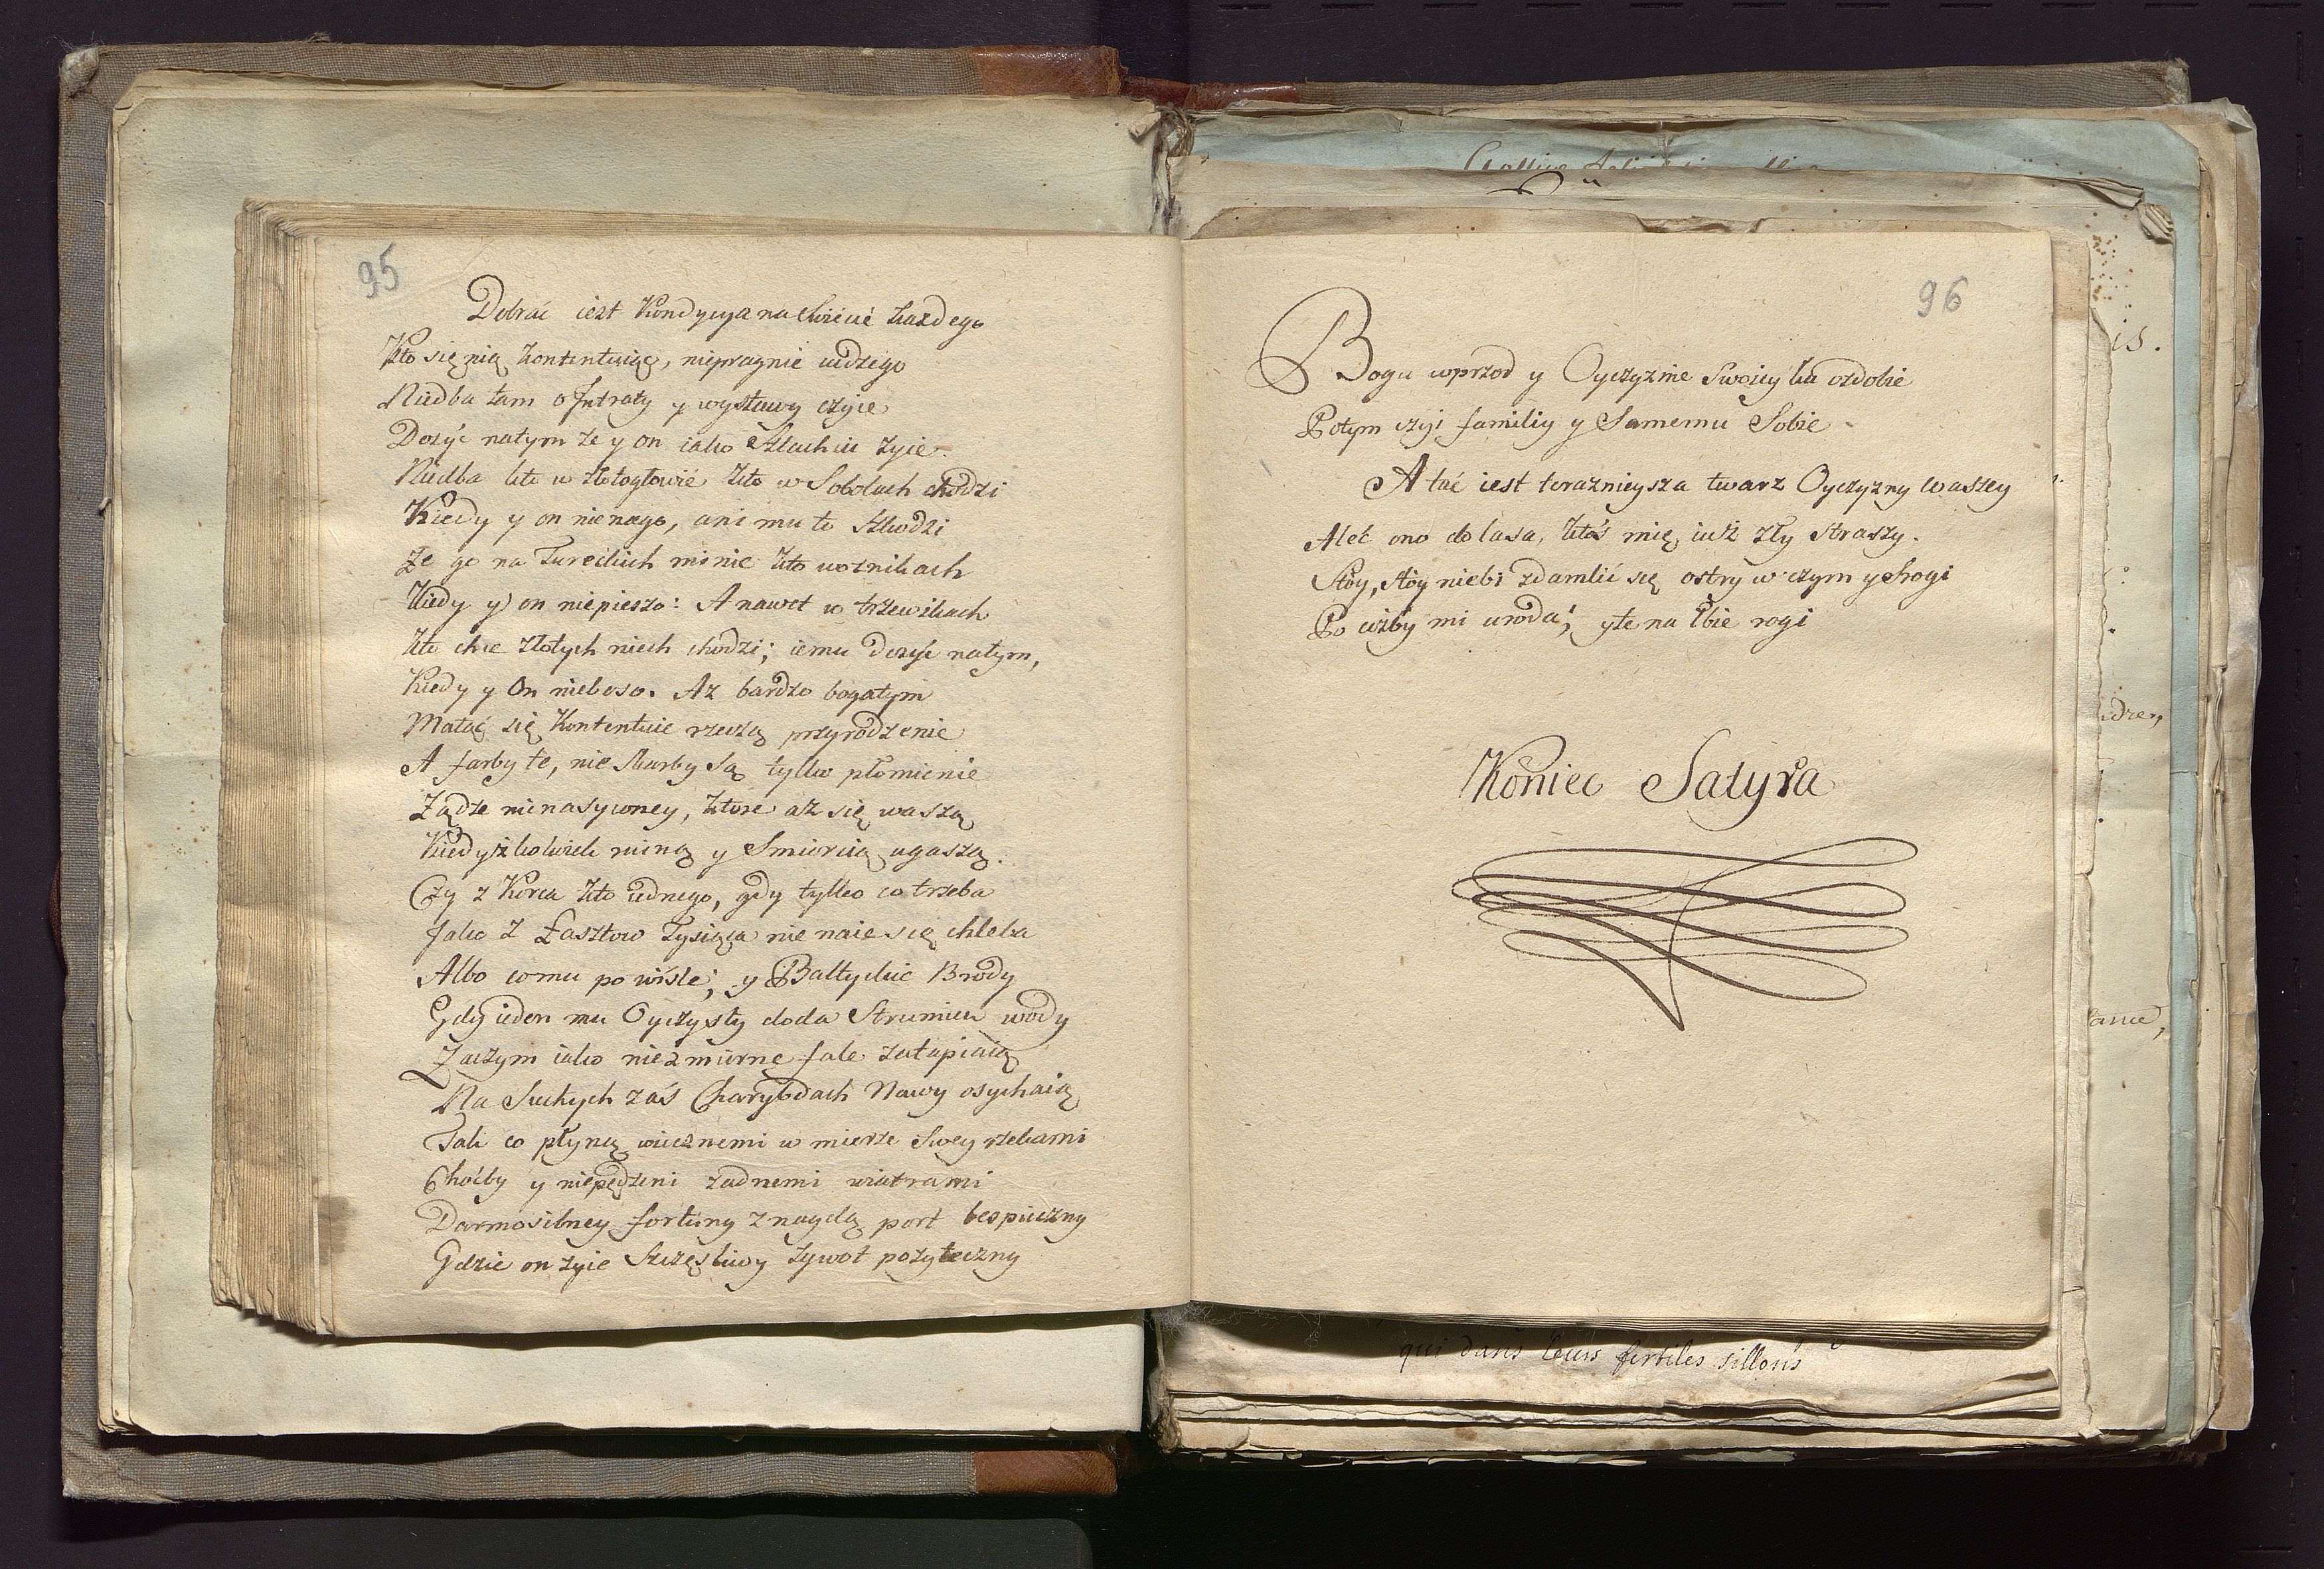 95
Dobrać iest Kondycya na Swiecie każdego
Kto się nią kontentuię, niepragnie cudzego
Niedba tam o Jntraty y wystawy czyie
Dosyć natym że y on iako Szlachcic żyie.
Niedba kto w złotogłowie kto w Sobolach chodzi
Kiedy y on nienago, ani mu to szkodzi
Że go na Tureckich minie kto woznikach
Kiedy y on niepieszo: A nawet w trzewikach
Kto chce złotych niech chodzi; iemu dosyć natym,
Kiedy y On nieboso. Az bardzo bogatym
Małąć się Kontentuie rzeczą przyrodzenie
A farby te, nie Skarby Są tylko płomienie
Żądze nienasyconey, ktore aż się waszą
Kiedyżkolwiek miną y Smiercią ugaszą.
Czy z Korca kto iednego, gdy tylko co trzeba
Jako z Łasztow Tysiąca nie naie się chleba
Albo comu po wiśle; y Baltyckie Brody
Gdy ieden mu Oyczysty doda Strumień wody
Zaczym iako niezmierne fale zatapiaią
Na Suchych zaś Charybdach Nawy osychaią
Tak co płyną wiecznemi w mierze Swey rzekami
Choćby y niepędzeni żadnemi wiatrami
Darmosilney fortuny znaydą port bespieczny
Gdzie on żyie Szczęsliwy żywot pożyteczny
96
Bogu wprzod y Oyczyznie Swoiey ku ozdobie
Potym czyi familiy y Samemu Sobie
A tać iest teraznieysza twarz Oyczyzny waszey
Aleć ono do lasa, ktoś mię iuż zły straszy.
Stoy, stoy niebi zdamlić się ostry w czym y Srogi
Po cożby mi uroda; y te na łbie rogi
Koniec Satyra
is.
qui dans leurs fertiles sillons